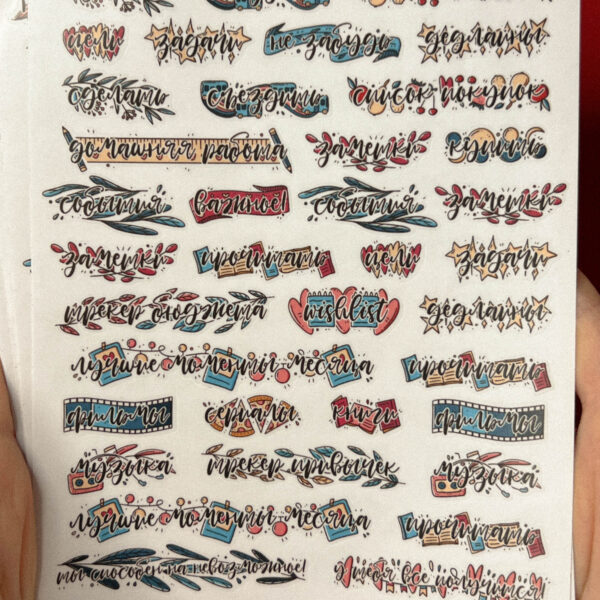 цели задачи не забудь дедлайны
сделать съездить список покупок
домашняя работа заметки купить
события важное! события заметки
заметки прочитать цели задачи
трекер бюджета wishlist дедлайны
лучшие моменты месяца прочитать
фильмы сериалы книги фильмы
музыка трекер привычек музыка
лучшие моменты месяца прочитать
ты способен на невозможное! у тебя все получится!